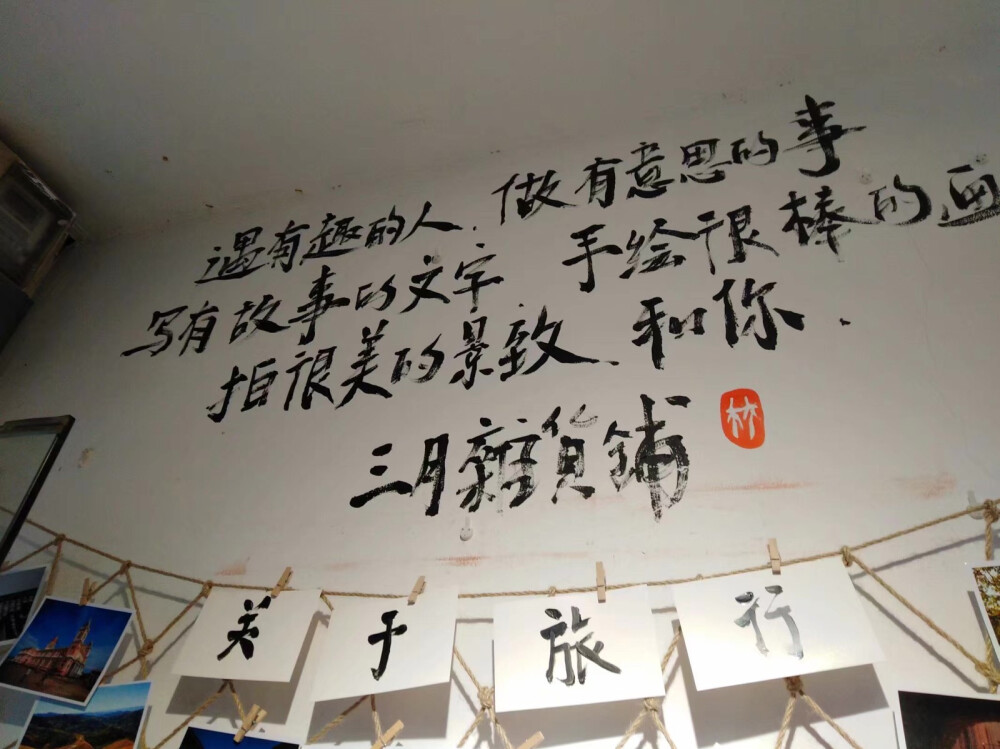 遇有趣的人、做有意思的事
写有故事的文字、手绘很棒的画
拍很美的景致、和你.
三月雜货铺
林
关于旅行